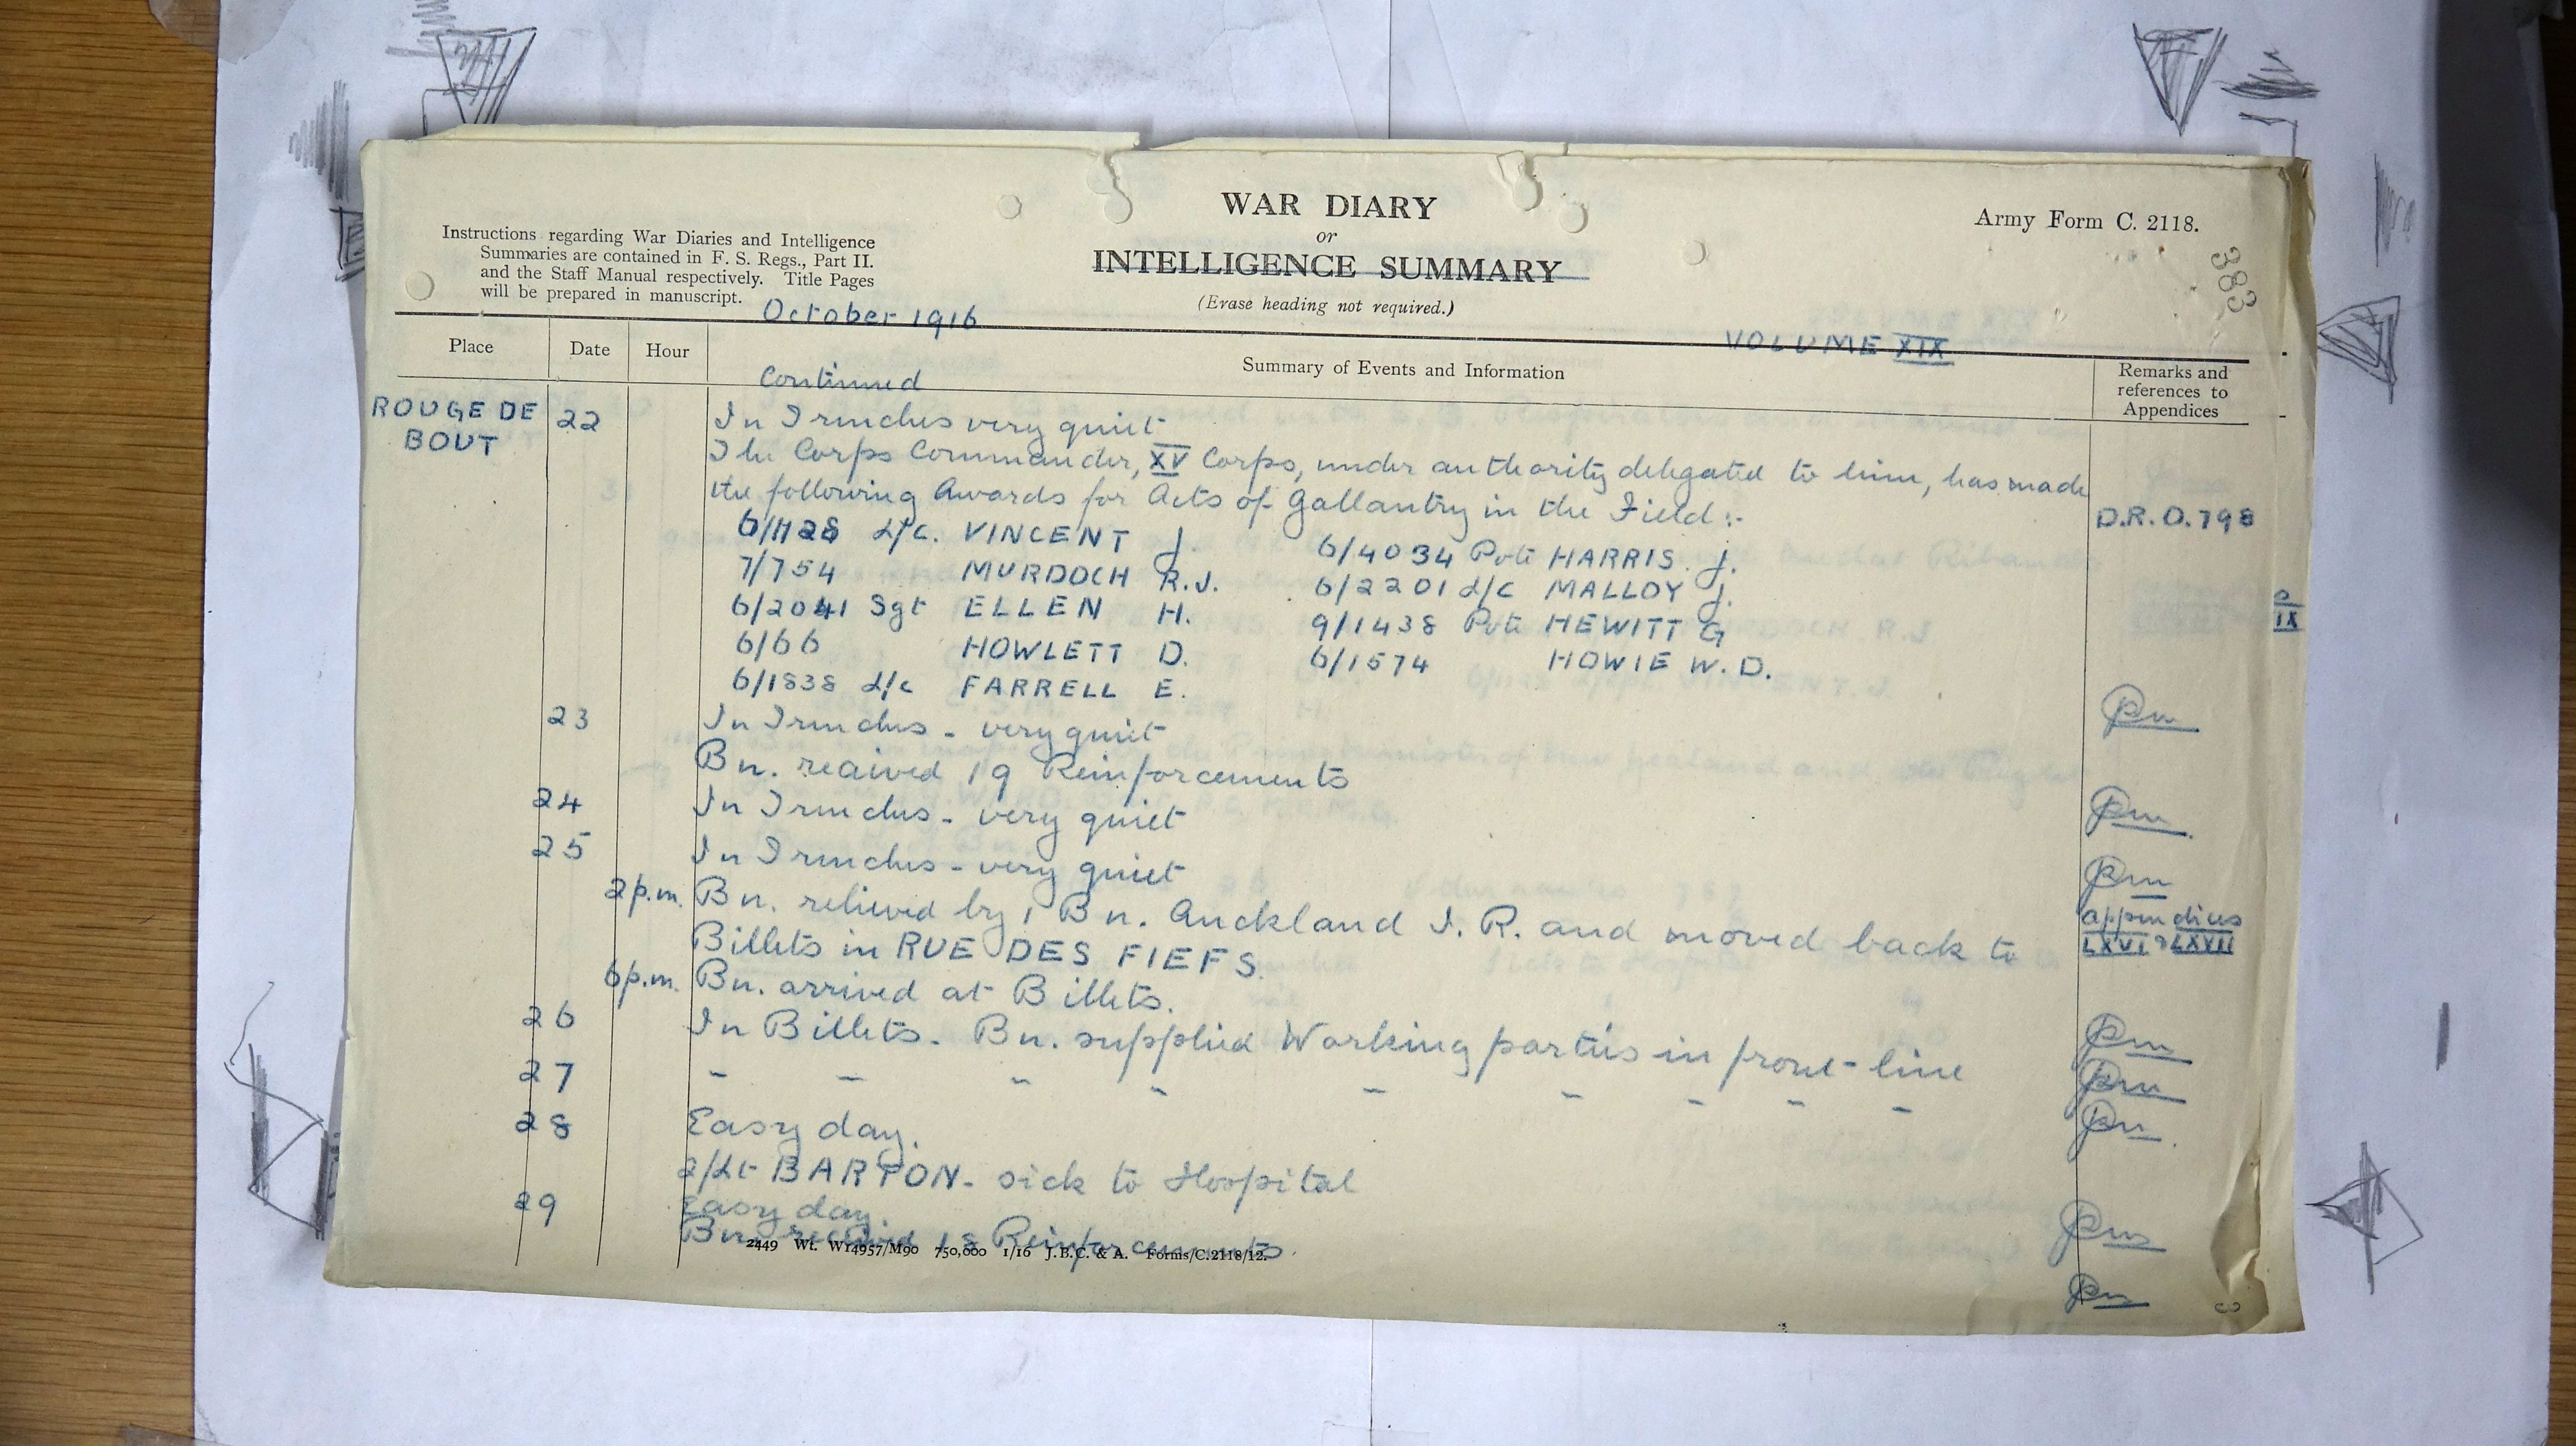 WAR DIARY
or
INTELLIGENCE SUMMARY
(Erase heading not required.)
Army Form C. 2118.
383
Instructions regarding War Diaries and Intelligence
Summaries are contained in F. S. Regs., Part II.
and the Staff Manual respectively. Title Pages
will be prepared in manuscript.
October 1916
VOLUME XIX
Place Date Hour Summary of Events and Information Remarks and
references to
Appendices
Continued
ROUGE DE 22 In Trenches very quiet
BOUT The Corps Commander, XV Corps, under authority delegated to him, has made
the following Awards for Acts of Gallantry in the Field :- D.R.O. 798
6/1128 L/C. VINCENT J. 6/4034 Pvte HARRIS. J.
7/754 MURDOCH R.J. 6/2201 L/C MALLOY J.
6/2041 Sgt ELLEN H. 9/1438 Pvte HEWITT G
6/66 HOWLETT D. 6/1574 HOWIE W. D.
6/1838 L/C FARRELL E.
23 In Trenches - very quiet
Bn. received 19 Reinforcements
24 In Trenches - very quiet
25 In Trenches - very quiet
2 p.m. Bn. relieved by 1 Bn. Auckland I. R. and moved back to appendices
Billets in RUE DES FIEFS. LXVI & LXVII
6 p.m. Bn. arrived at Billets.
26 In Billets. Bn. supplied Working parties in front-line
27 - - - - - - - - -
28 Easy day.
2/Lt BARTON - sick to Hospital
29 Easy day.
Bn. received 18 Reinforcements
2449 Wt. W14957/M90 750,000 1/16 J.B.C. & A. Forms/C.2118/12.
IX